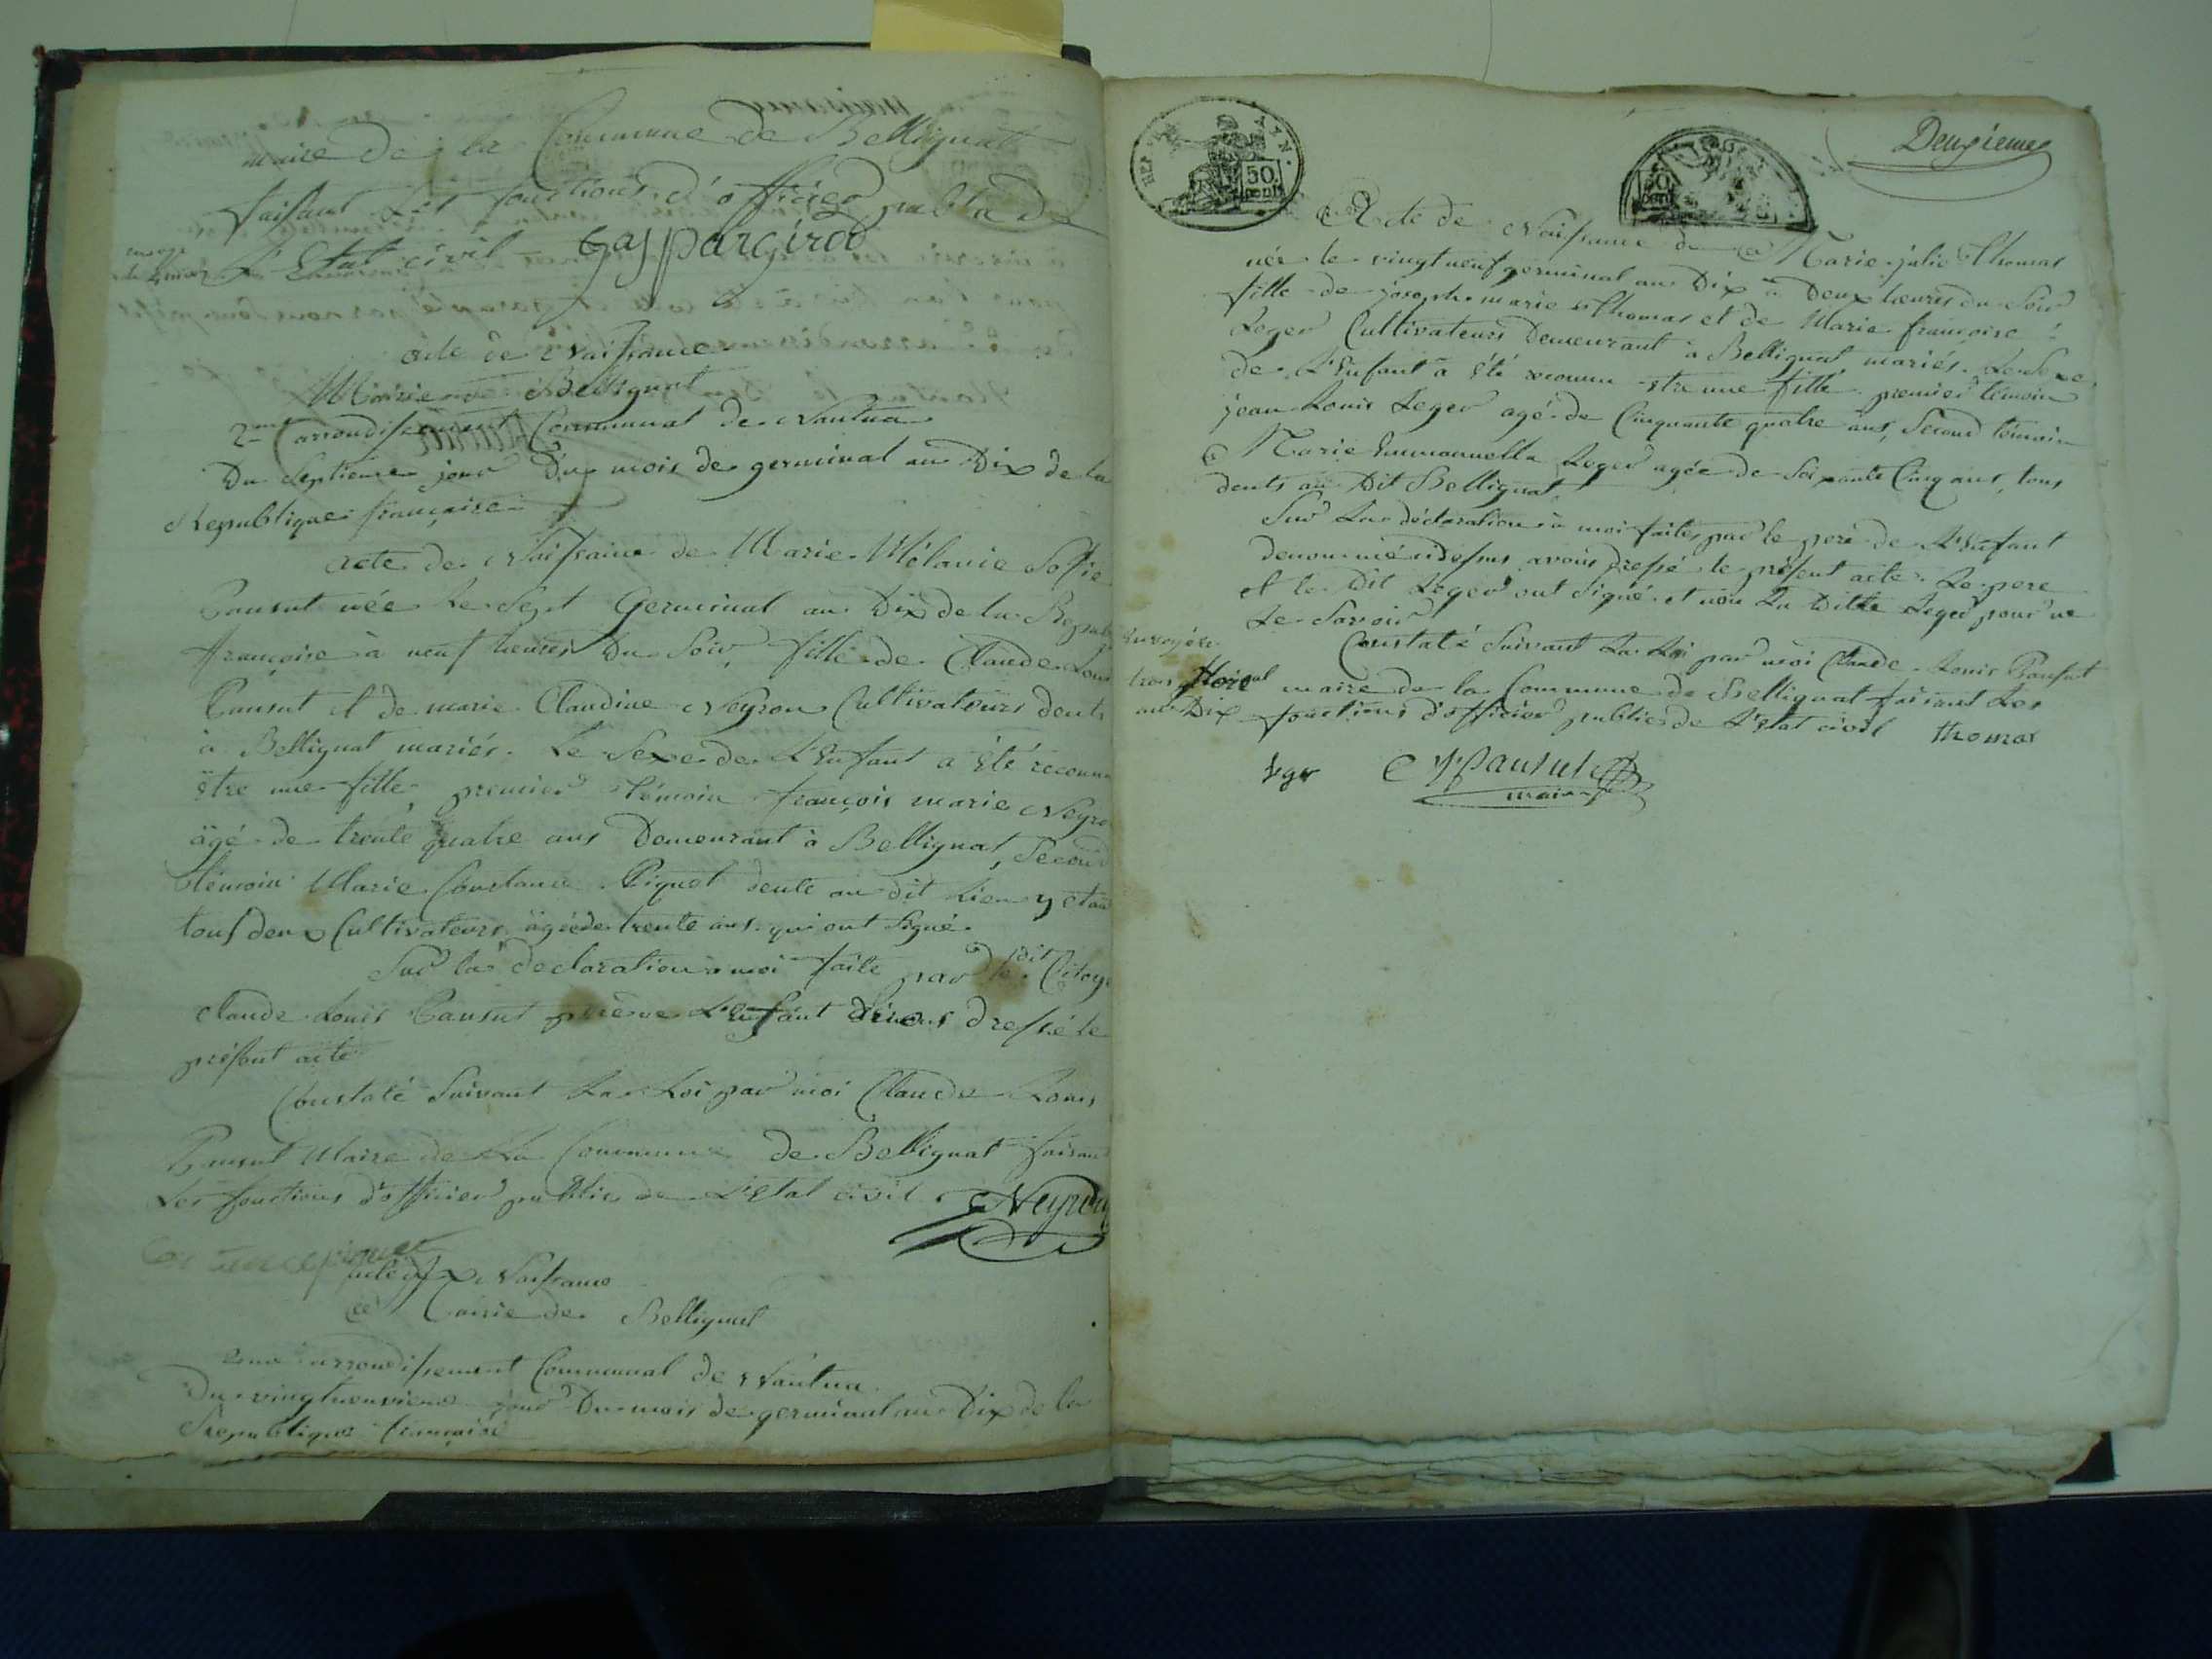 maire de la Commune de Bellignat
faisant Les fonctions d'officier public de
L'Etat civil Gaspard girod
acte de Naissance
Mairie de Bellignat
2me arrondissement Communal de Nantua
Du Septieme jour Du mois de germinal an Dix de la
Republique francaise
acte de Naissance de Marie Mélanie Sofie
Pansut née Le Sept Germinal an Dix de la Republ
françoise à neuf heures Du Soir, fille de Claude Louis
Pansut et de marie Claudine Neyron Cultivateurs dents
à Bellignat mariés. Le Sexe de L'Enfant a été reconnu
être une fille, premier témoin françois marie Neyro
âgé de trente quatre ans Demeurant à Bellignat, Second
témoin Marie Constance Piquet dente au dit Lieu
tous deux Cultivateurs âgée de trente ans qui ont Signé.
Sur la declaration à moi faite par le dit Citoye
Claude Louis Pansut père de L'Enfant avons dressé le
présent acte
Constaté Suivant La Loi par moi Claude Louis
Pansut Maire de La Commune de Bellignat faisant
Les fonctions d'officier public de L'Etat civil Neyron
acte de Naissance
Mairie de Bellignat
2me arrondissement Communal de Nantua
Du vingtneuvieme jour Du mois de germinal an Dix de la
Republique francaise
REP. FRAN.
50. cent.
50 cent
Deuxieme
Acte de Naissance de Marie julie Thomas
née le vingt neuf germinal an Dix à Deux heures du Soir
fille de joseph marie Thomas et de Marie françoise
Leger Cultivateurs Demeurant à Bellignat mariés. Le Sexe
de L'Enfant a été reconnu etre une fille. premier témoin
jean Louis Leger agé de Cinquante quatre ans, Second témoin
Marie Emmanuella Leger agée de Soixante Cinq ans, tous
dents au Dit Bellignat
Sur La déclaration à moi faite par le pere de L'Enfant
denommé cidessus avons dressé le présent acte. Le pere
et le Dit Leger ont Signé et non La Ditte Leger pour ne
Le Savoir
Constaté Suivant La Loi par moi Claude Louis Pansut
maire de la Commune de Bellignat faisant Les
fonctions d'officier public de L'Etat civil thomas
trois floreal
an Dix
leger Pansut
maire